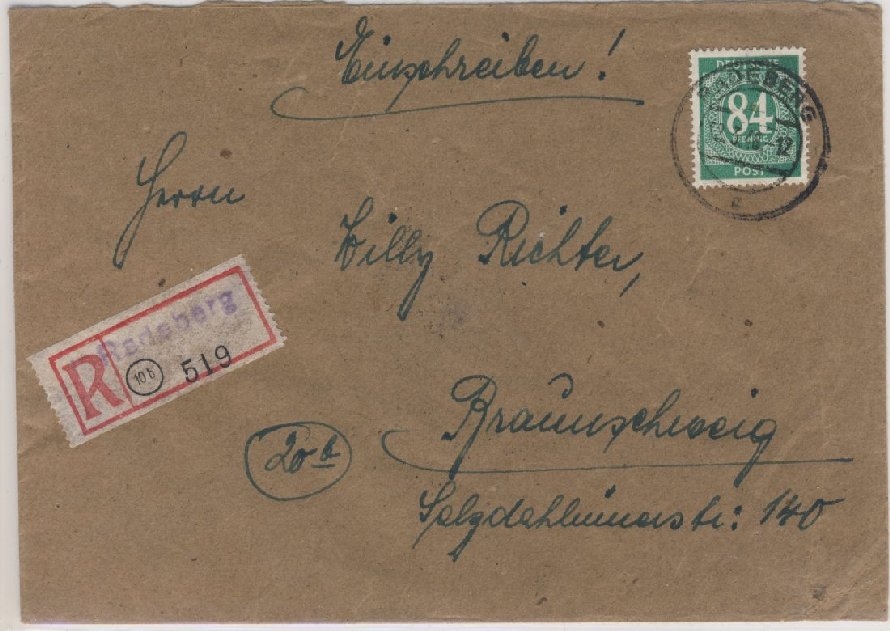 Einschreiben!
DEUTSCHE
84
PFENNIG
POST
RADEBERG
12
c
Herrn
Willy Richter,
Radeberg
R 10b 519
20b
Braunschweig
Salzdahlumerstr: 140